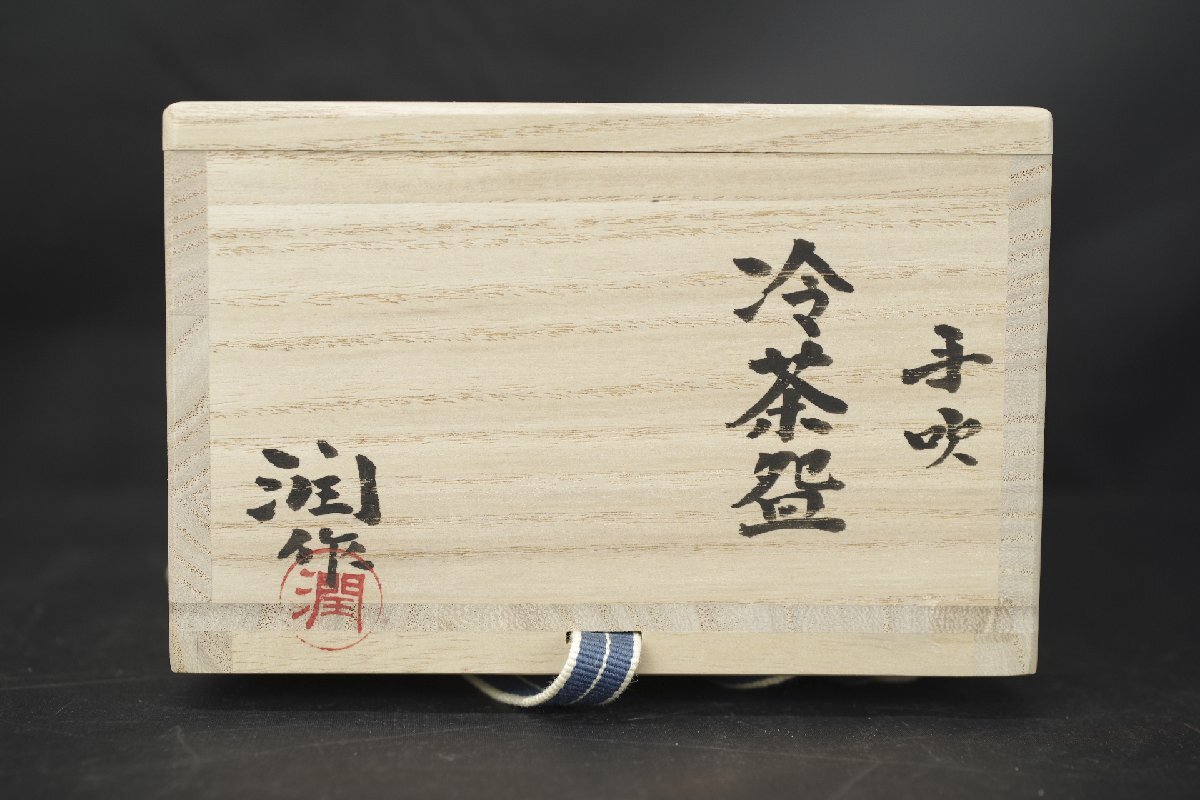 手吹
冷茶盌
潤作
潤